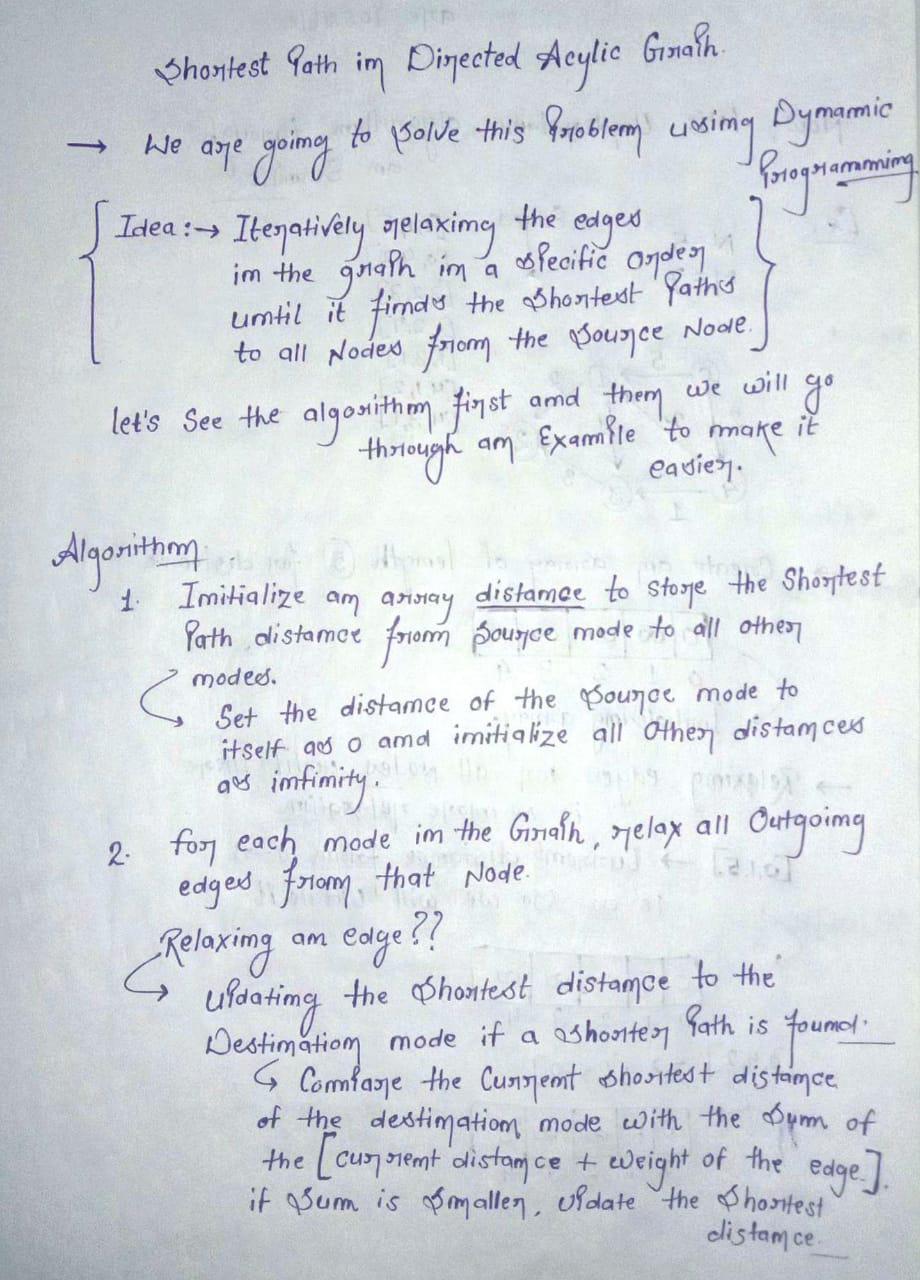 Shortest Path in Directed Acylic Graph.
→ We are going to solve this Problem using Dynamic
Programming
Idea :→ Iteratively relaxing the edges
in the graph in a specific order
until it finds the shortest Paths
to all Nodes from the source Node.
let's See the algorithm first and then we will go
through an Example to make it
easier.
Algorithm
1. Initialize an array distance to store the Shortest
Path distance from source node to all other
nodes.
↳ Set the distance of the source node to
itself as 0 and initialize all other distances
as infinity.
2. for each node in the Graph, relax all Outgoing
edges from that Node.
Relaxing an edge??
↳ updating the shortest distance to the
Destination node if a shorter Path is found.
↳ Compare the Current shortest distance
of the destination node with the sum of
the [current distance + weight of the edge].
if sum is smaller, update the shortest
distance.